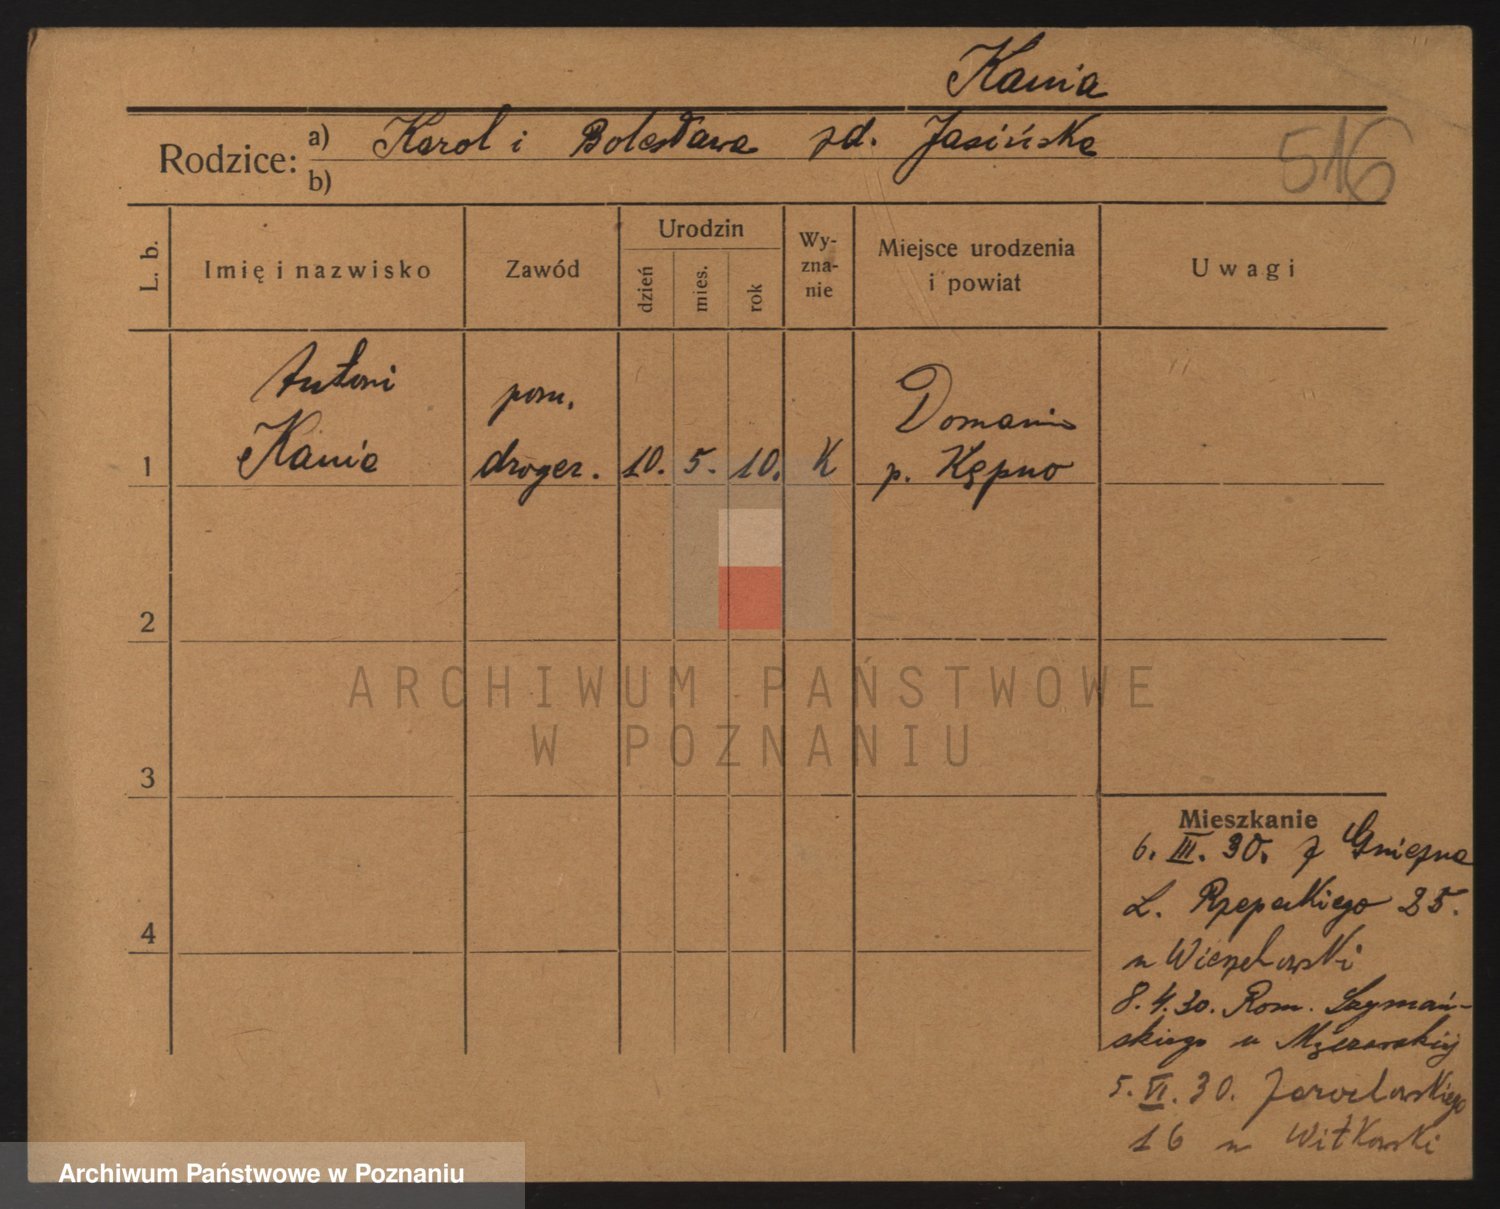 Kania
Rodzice: a) Karol i Bolesława zd. Jasińska
b)
516
L. b.
Imię i nazwisko
Zawód
Urodzin
dzień
mies.
rok
Wy-
zna-
nie
Miejsce urodzenia
i powiat
Uwagi
Antoni
pom.
Domanin
1 Kania droger. 10. 5. 10. K p. Kępno
2
3
4
ARCHIWUM PAŃSTWOWE
W POZNANIU
Mieszkanie
6. III. 30. z Gniezna
L. Rzepeckiego 25.
u
8.4.30. Rom. Szymań-
skiego u
5. VI. 30.
16 u Witkowski
Archiwum Państwowe w Poznaniu